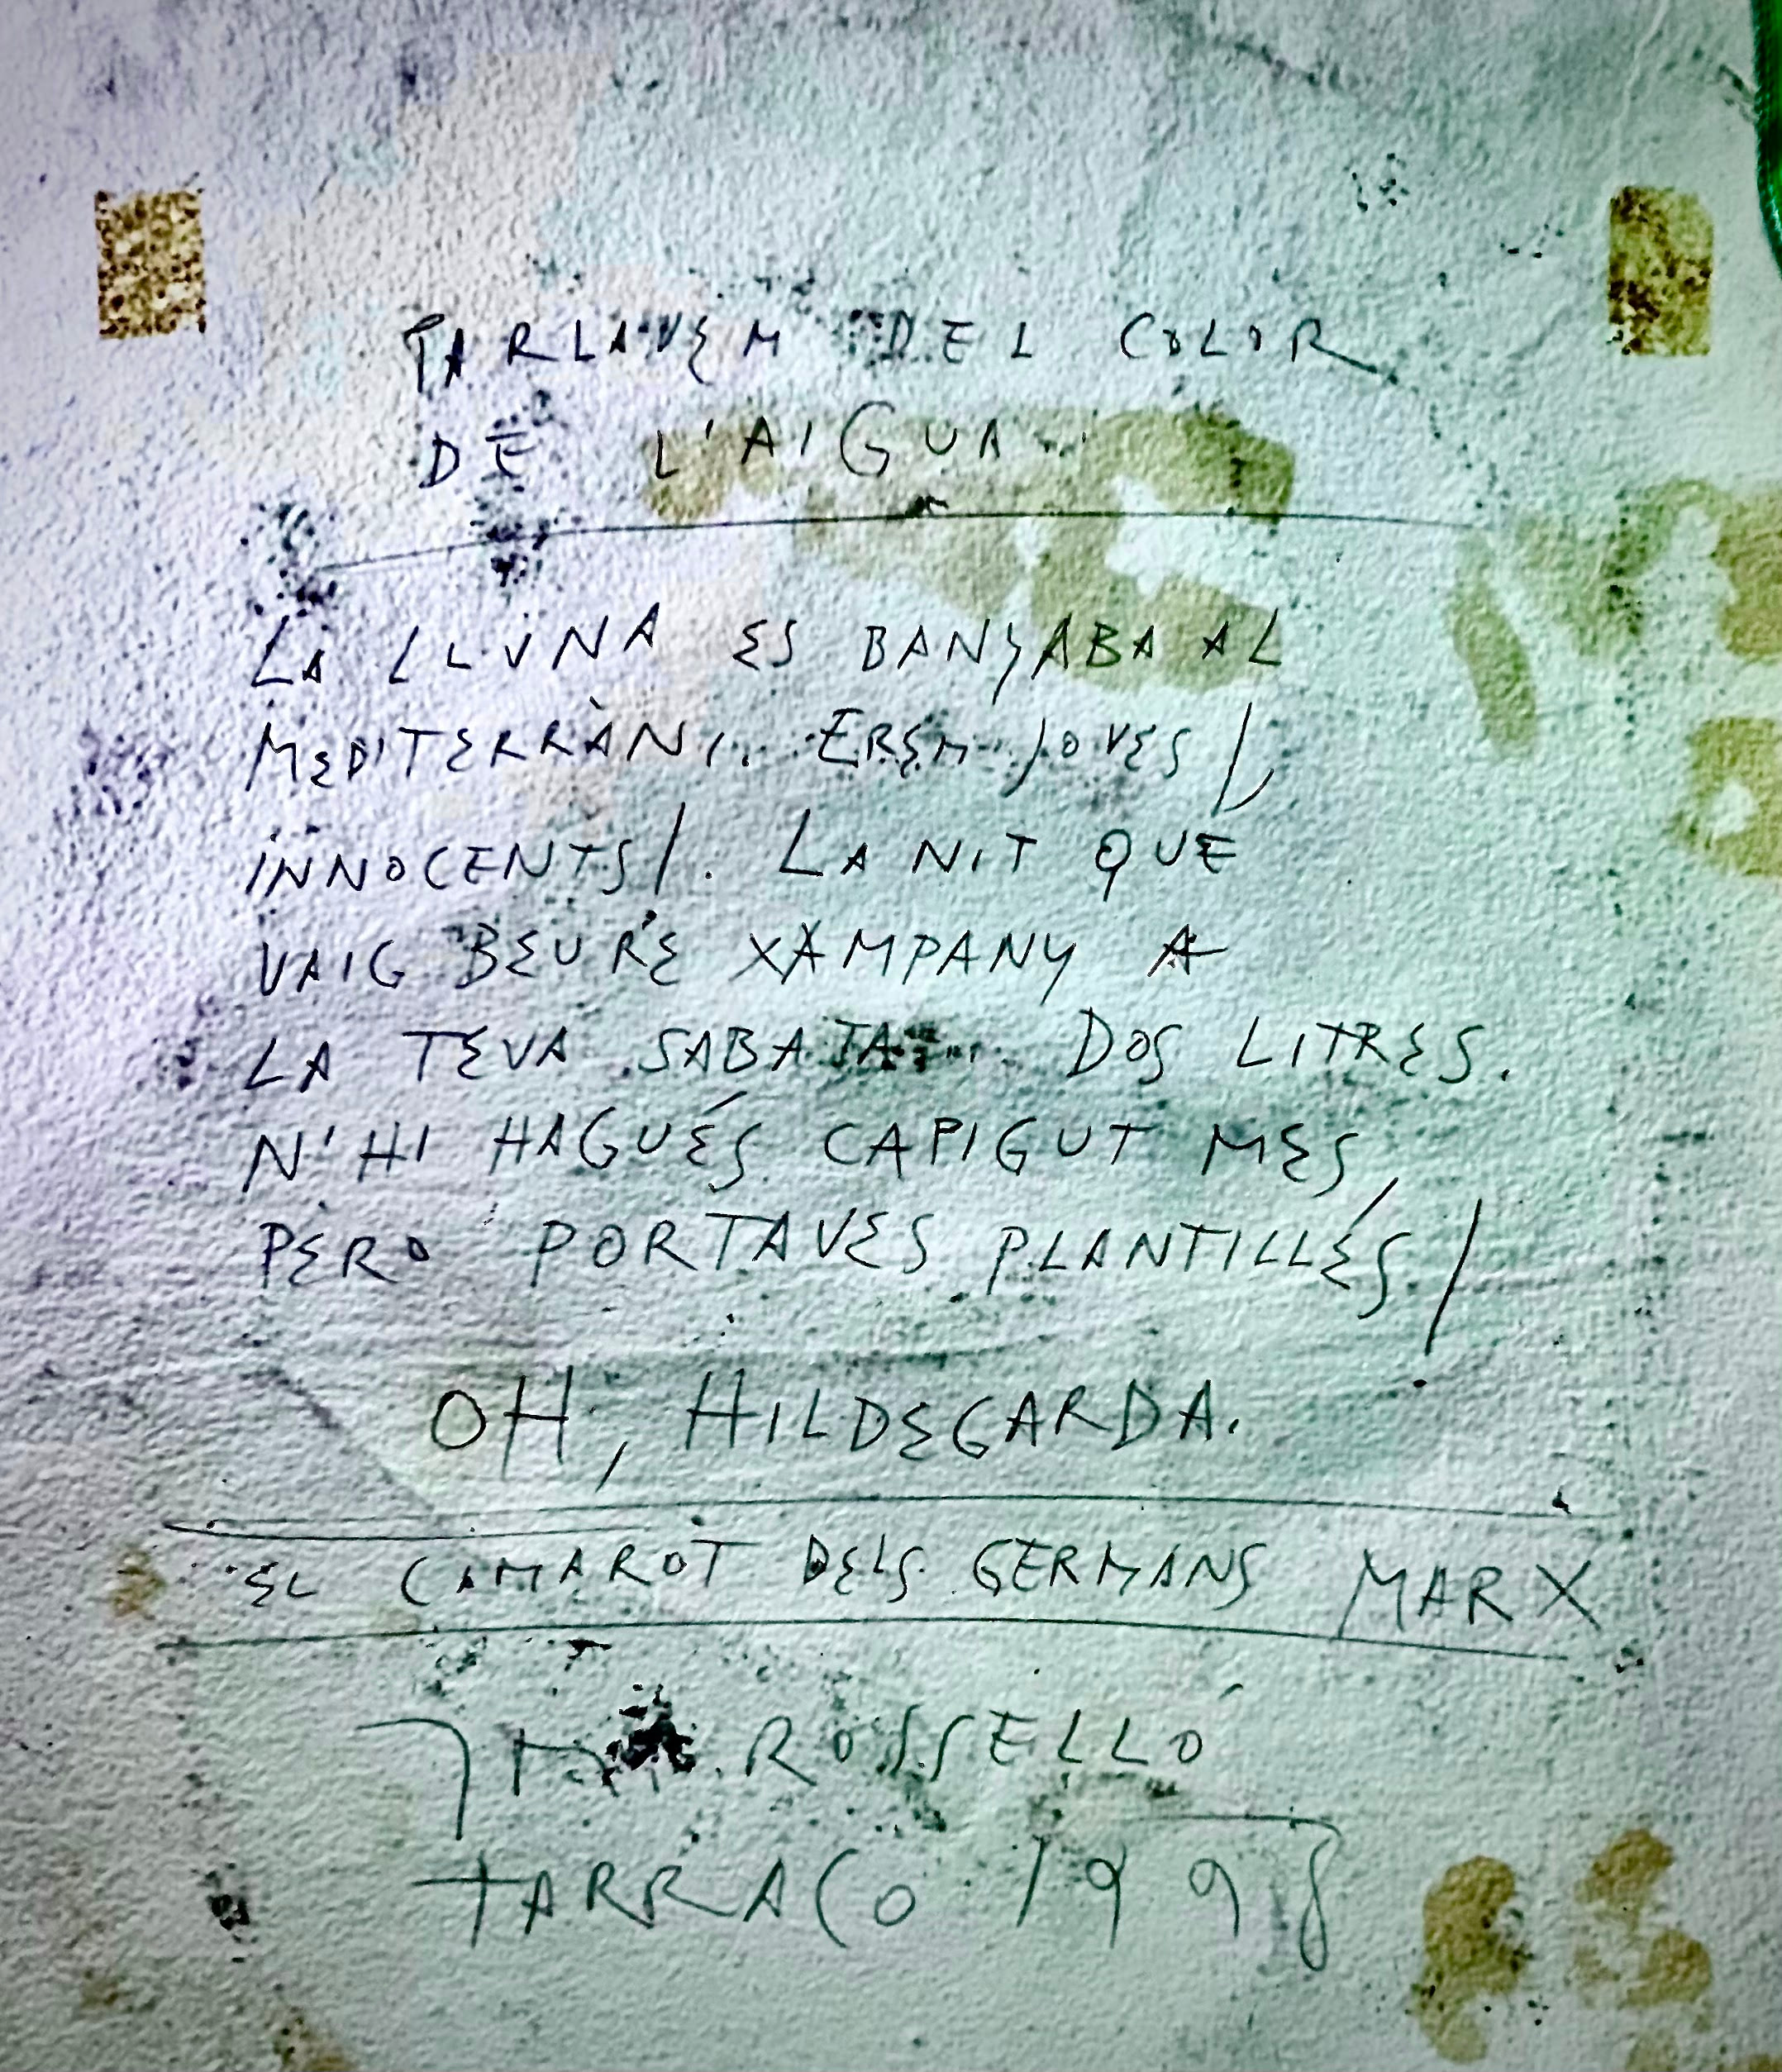 PARLAVEM DEL COLOR
DE L'AIGUA
LA LLUNA ES BANYABA AL
MEDITERRÀNI. EREM JOVES /,
INNOCENTS/. LA NIT QUE
VAIG BEURE XAMPANY A
LA TEVA SABATA. DOS LITRES.
N'HI HAGUÉS CAPIGUT MES,
PERO PORTAVES PLANTILLES/
OH, HILDEGARDA.
EL CAMAROT DELS GERMANS MARX
ROSSELLÓ
TARRACO 1998